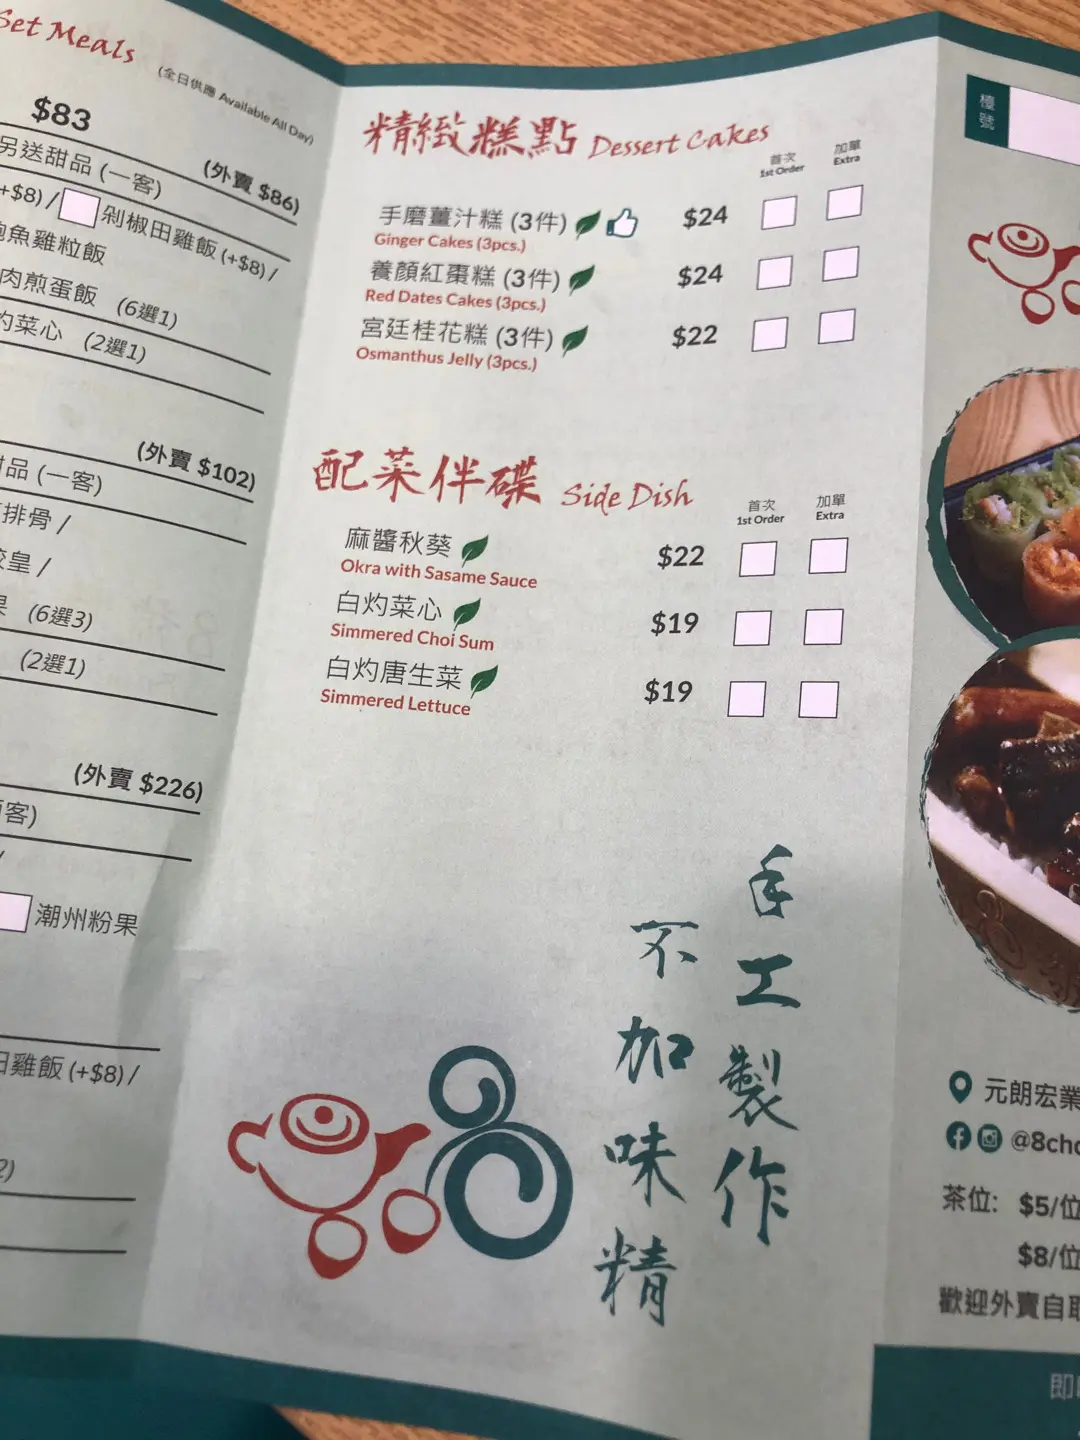 Set Meals
(全日供應 Available All Day)
$83
(外賣 $86)
另送甜品 (一客)
+$8) / 剁椒田雞飯 (+$8) /
鮑魚雞粒飯
肉煎蛋飯 (6選1)
灼菜心 (2選1)
(外賣 $102)
甜品 (一客)
排骨 /
餃皇 /
果 (6選3)
(2選1)
(外賣 $226)
兩客)
/
潮州粉果
田雞飯 (+$8) /
2)
精緻糕點 Dessert Cakes
首次 加單
1st Order Extra
手磨薑汁糕 (3件) $24
Ginger Cakes (3pcs.)
養顏紅棗糕 (3件) $24
Red Dates Cakes (3pcs.)
宮廷桂花糕 (3件) $22
Osmanthus Jelly (3pcs.)
配菜伴碟 Side Dish
首次 加單
1st Order Extra
麻醬秋葵 $22
Okra with Sasame Sauce
白灼菜心 $19
Simmered Choi Sum
白灼唐生菜 $19
Simmered Lettuce
手工製作
不加味精
檯號
元朗宏業
@8cho
茶位: $5/位
$8/位
歡迎外賣自取
即